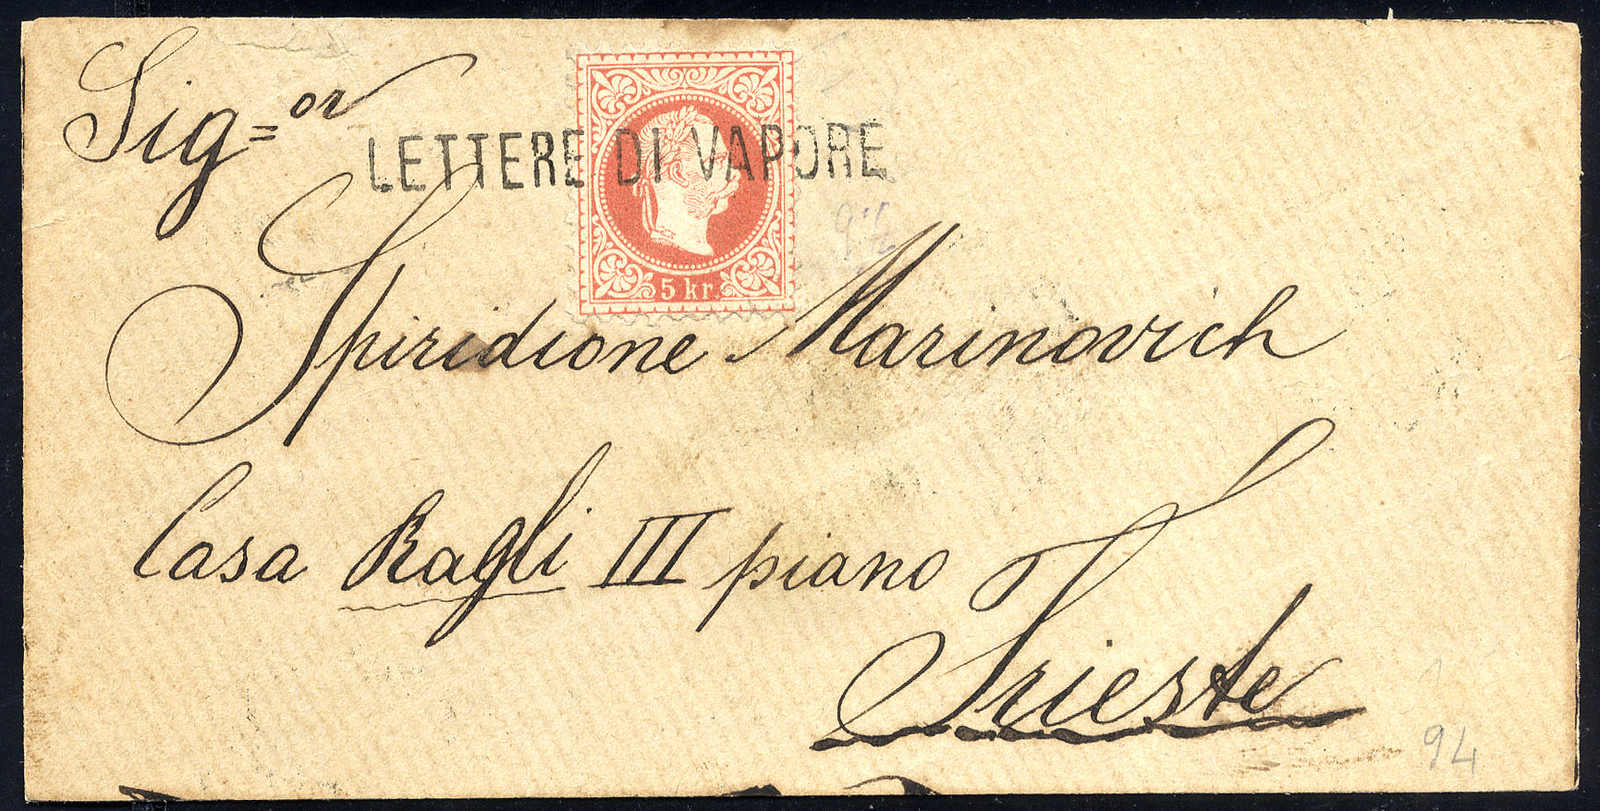 Sig=or
LETTERE DI VAPORE
5 kr.
9 1/2
Spiridione Marinovich
Casa Ragli III piano
Trieste
94